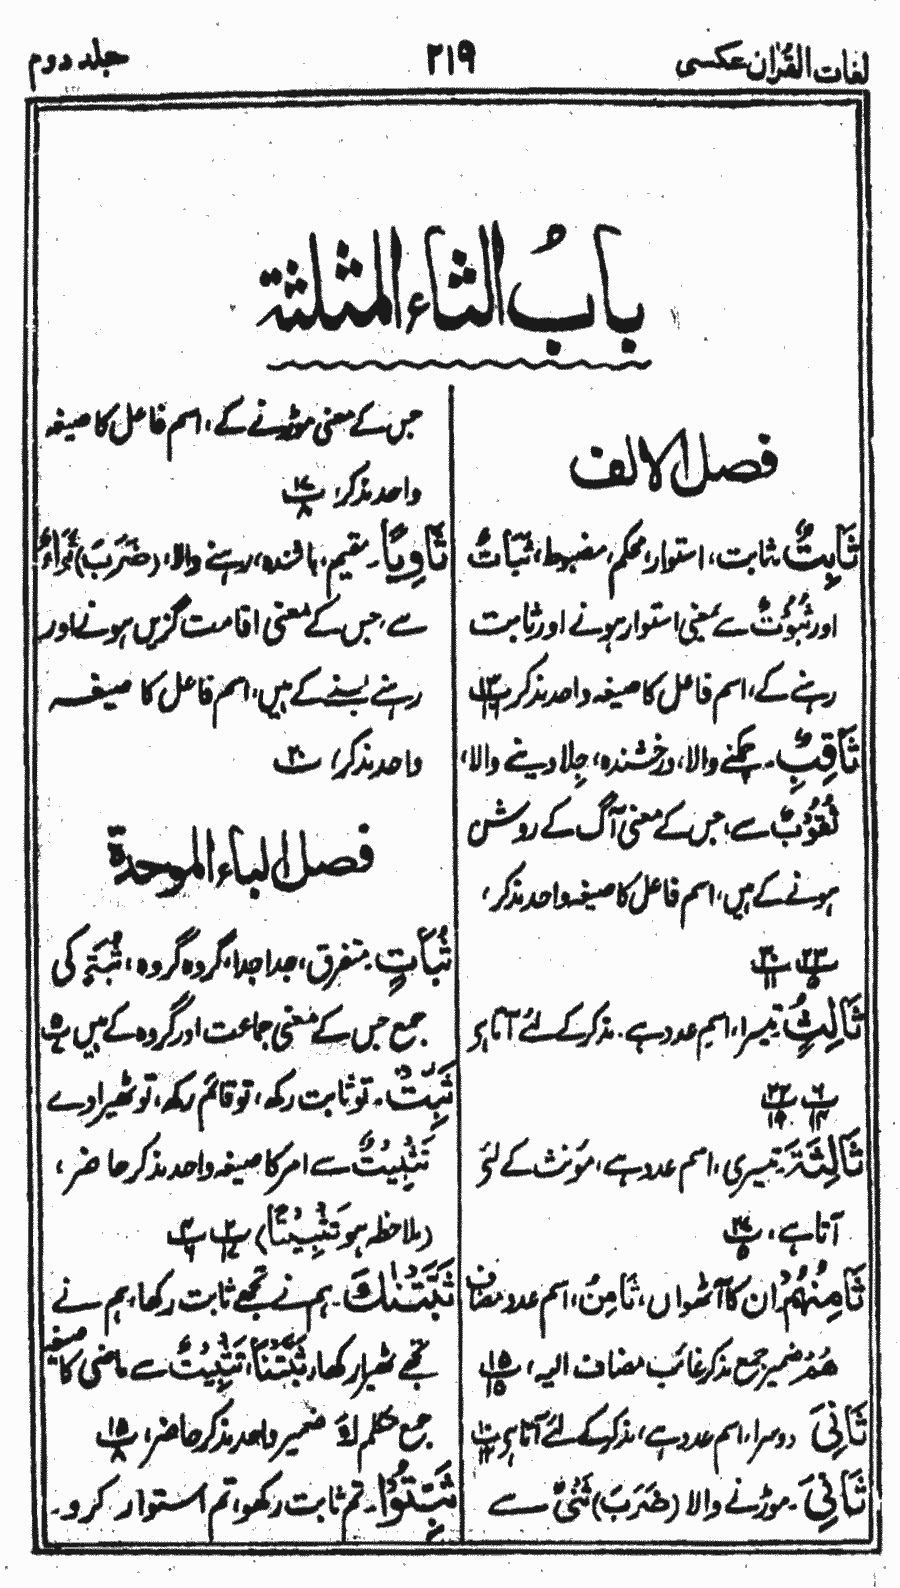 لغات القرآن عکسی
۲۱۹
جلد دوم
بابُ الثاء المثلثة
فصل الالف
ثَابِتٌ۔ ثابت، استوار، محکم، مضبوط، ثَبَاتٌ
اور ثُبُوْتٌ سے بمعنی استوار ہونے اور ثابت
رہنے کے، اسم فاعل کا صیغہ واحد مذکر
ثَاقِبٌ۔ چمکنے والا، درخشندہ، جلا دینے والا،
ثُقُوْبٌ سے، جس کے معنی آگ کے روشن
ہونے کے ہیں، اسم فاعل کا صیغہ واحد مذکر،
پ۲۳ ۵ پ۳۰ ۱۱
ثَالِثٌ۔ تیسرا، اسم عدد ہے۔ مذکر کے لئے آتا ہے
پ۶ ۱۴ پ۲۲ ۱۹
ثَالِثَةَ۔ تیسری، اسم عدد ہے، مؤنث کے لئے
آتا ہے،
ثَامِنُهُمْ ان کا آٹھواں، ثَامِنُ، اسم عدد مضاف
هُمْ ضمیر جمع مذکر غائب مضاف الیہ، پ۱۵ ۱۵
ثَانِیَ دوسرا، اسم عدد ہے، مذکر کے لئے آتا ہے
ثَانِیَ۔ موڑنے والا (ضَرَبَ) ثَنْیٌ سے
جس کے معنی موڑنے کے، اسم فاعل کا صیغہ
واحد مذکر، پ۱۷ ۸
ثَاوِیًا۔ مقیم، باشندہ، رہنے والا، (ضَرَبَ) ثَوَاءٌ
سے، جس کے معنی اقامت گزیں ہونے اور
رہنے بسنے کے ہیں، اسم فاعل کا صیغہ
واحد مذکر، پ۲۰
فصل الباء الموحدة
ثُبَاتٍ۔ متفرق، جدا جدا، گروہ گروہ، ثُبَةٌ کی
جمع جس کے معنی جماعت اور گروہ کے ہیں پ۵
ثَبِّتْ۔ تو ثابت رکھ، تو قائم رکھ، تو ٹھیرا دے
تَثْبِیْتٌ سے امر کا صیغہ واحد مذکر حاضر،
(ملاحظہ ہو تَثْبِیْتًا)
ثَبَّتْنٰكَ۔ ہم نے تجھے ثابت رکھا، ہم نے
تجھے ٹھیرا رکھا، ثَبَّتْنَا، تَثْبِیْتٌ سے ماضی کا صیغہ
جمع متکلم لَكَ ضمیر واحد مذکر حاضر، پ۱۵ ۸
ثَبِّتُوْا۔ تم ثابت رکھو، تم استوار کرو۔